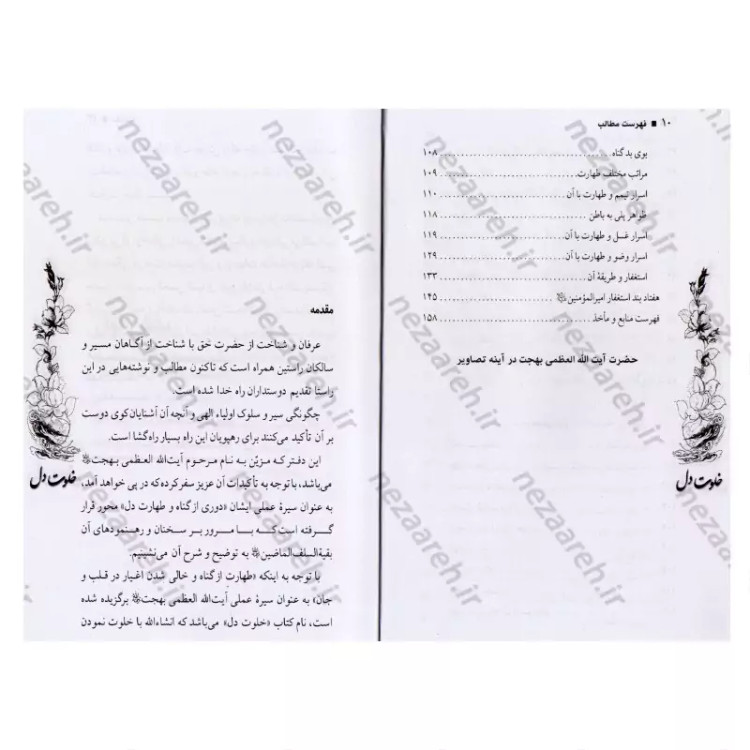 ۱۰ ■ فهرست مطالب
بوی بد گناه ........ ۱۰۸
مراتب مختلف طهارت ........ ۱۰۹
اسرار تیمم و طهارت با آن ........ ۱۱۰
ظواهر پلی به باطن ........ ۱۱۸
اسرار غسل و طهارت با آن ........ ۱۱۹
اسرار وضو و طهارت با آن ........ ۱۲۹
استغفار و طریقهٔ آن ........ ۱۳۳
هفتاد بند استغفار امیرالمؤمنین ........ ۱۴۵
فهرست منابع و مآخذ ........ ۱۵۸
حضرت آیت الله العظمی بهجت در آینه تصاویر
خلوت دل
مقدمه
عرفان و شناخت از حضرت حق با شناخت از آگاهان مسیر و
سالکان راستین همراه است که تاکنون مطالب و نوشته‌هایی در این
راستا تقدیم دوستداران راه خدا شده است.
چگونگی سیر و سلوک اولیاء الهی و آنچه آن آشنایان کوی دوست
بر آن تأکید می‌کنند برای رهپویان این راه بسیار راه‌گشا است.
این دفتر که مزیّن به نام مرحوم آیت‌الله العظمی بهجت
می‌باشد، با توجه به تأکیدات آن عزیز سفر کرده که در پی خواهد آمد،
به عنوان سیرهٔ عملی ایشان «دوری از گناه و طهارت دل» محور قرار
گرفته است که با مرور بر سخنان و رهنمودهای آن
بقیة‌السلف‌الماضین به توضیح و شرح آن می‌نشینیم.
با توجه به اینکه «طهارت از گناه و خالی شدن اغیار در قلب و
جان» به عنوان سیرهٔ عملی آیت‌الله العظمی بهجت برگزیده شده
است، نام کتاب «خلوت دل» می‌باشد که انشاءالله با خلوت نمودن
خلوت دل
nezaareh.ir
nezaareh.ir
nezaareh.ir
nezaareh.ir
nezaareh.ir
nezaareh.ir
nezaareh.ir